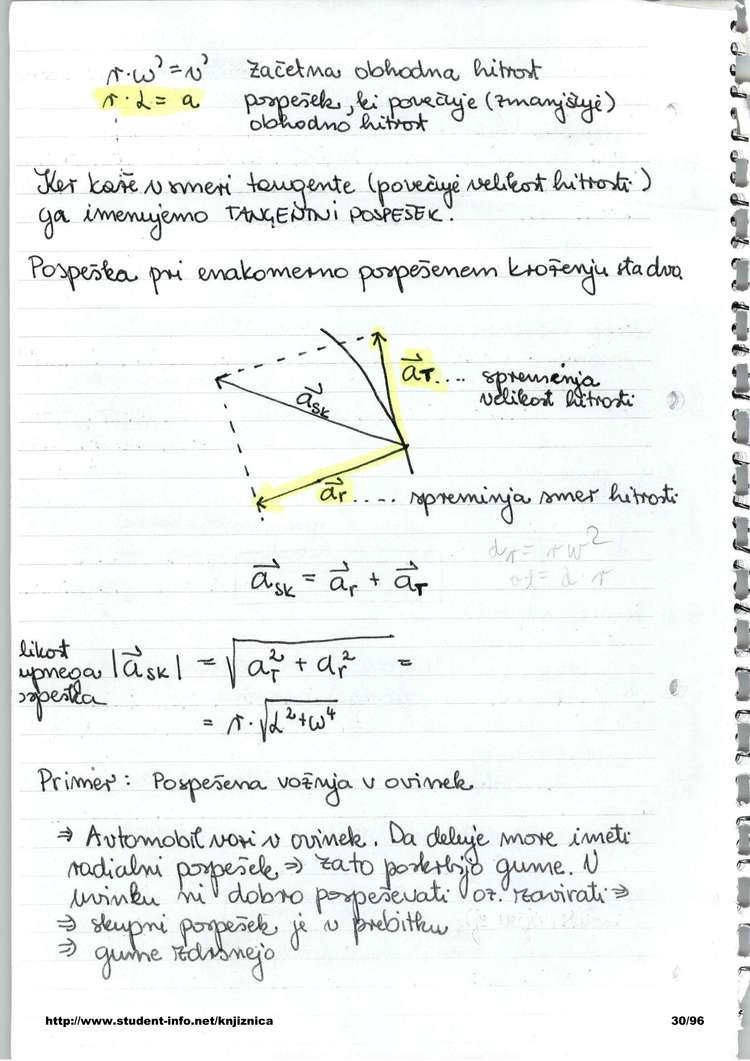 r·ω' = v' začetna obhodna hitrost
r·α = a pospešek, ki povečuje (zmanjšuje)
obhodno hitrost
Ker kaže v smeri tangente (povečuje velikost hitrosti)
ga imenujemo TANGENTNI POSPEŠEK.
Pospeška pri enakomerno pospešenem kroženju sta dva
a⃗T.... spremenja
velikost hitrosti
a⃗sk
a⃗r.... spreminja smer hitrosti
ar = rω²
at = α·r
a⃗sk = a⃗r + a⃗T
likost
upnega |a⃗sk| = √(aT² + ar²) =
ospeška
= r·√(α²+ω⁴)
Primer: Pospešena vožnja v ovinek
⇒ Avtomobil vozi v ovinek. Da deluje more imeti
radialni pospešek ⇒ zato poskrbijo gume. V
ovinku ni dobro pospeševati oz. zavirati ⇒
⇒ skupni pospešek je v prebitku
⇒ gume zdrsnejo
http://www.student-info.net/knjiznica 30/96